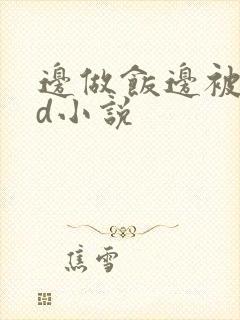 邊做飯邊被
d小說
焦雪